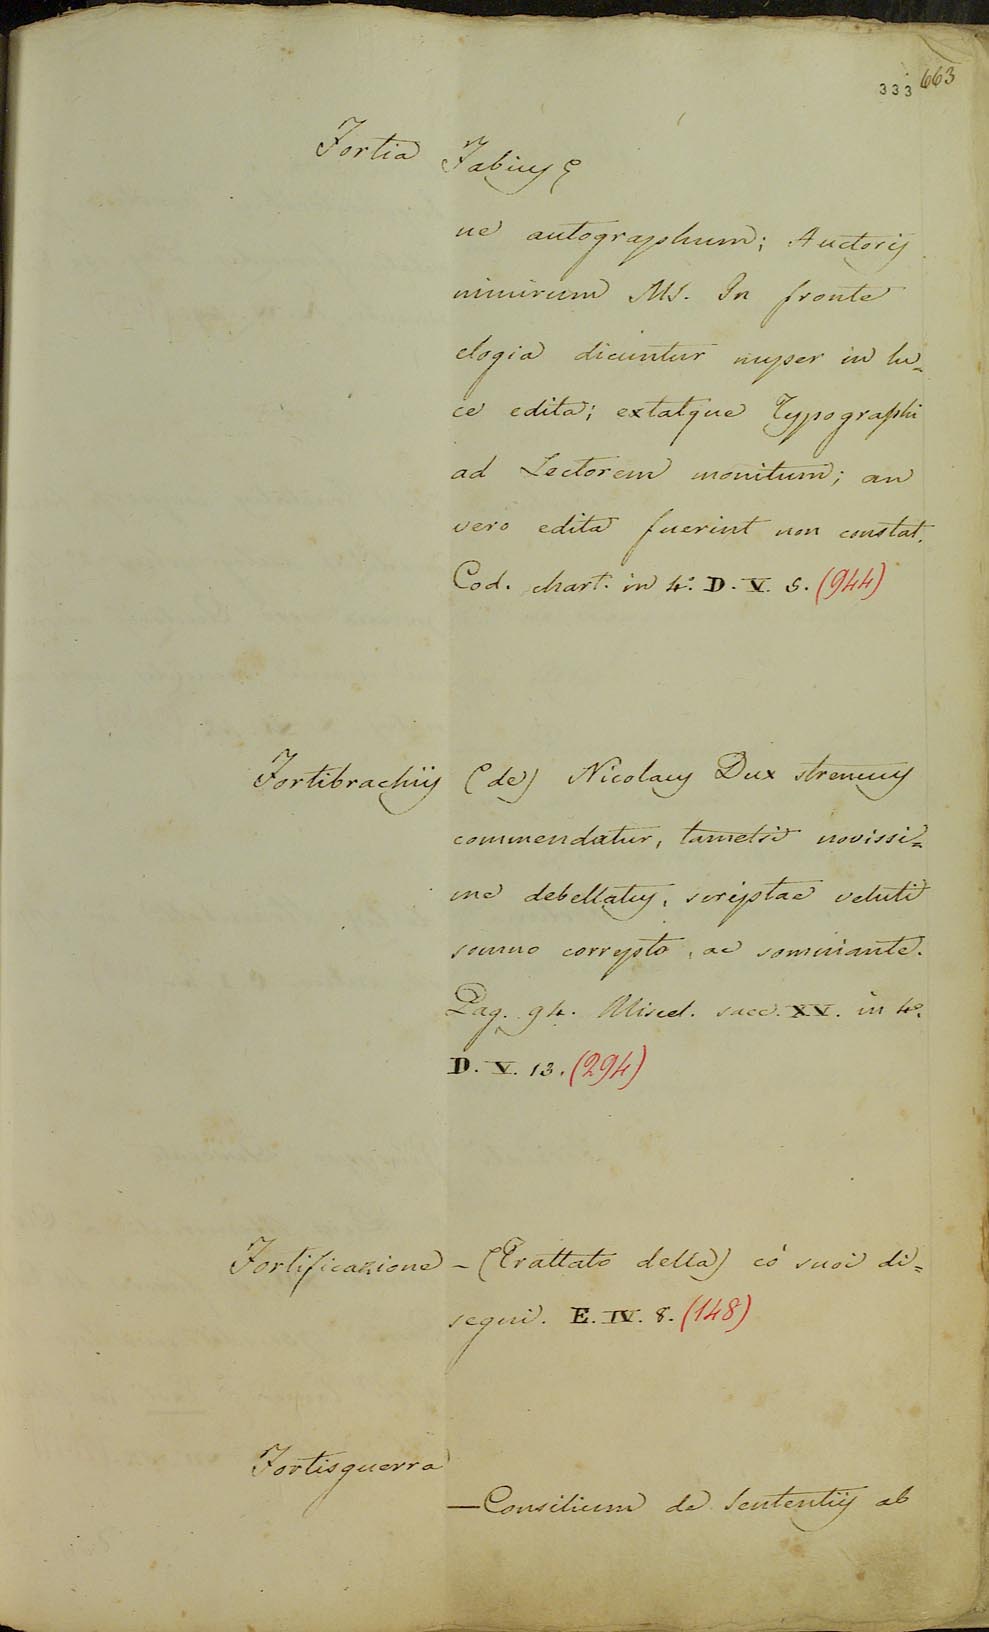 333 663
Fortia Fabius
ne autographum; Auctoris
nimirum MS. In fronte
elogia dicuntur nuper in lu=
ce edita; extatque Typographi
ad Lectorem monitum; an
vero edita fuerint non constat.
Cod. chart. in 4.º D. V. 5. (944)
Fortibrachiis (de) Nicolaus Dux strenuus
commendatur, tametsi novissi=
me debellatus, scriptae veluti
somno correpto, ac somniante.
Pag. 94. Miscel. saec. XV. in 4.º
D. V. 13. (294)
Fortificazione - (Trattato della) co' suoi di=
segni. E. IV. 8. (148)
Fortisguerra
— Consilium de Sententiis ab